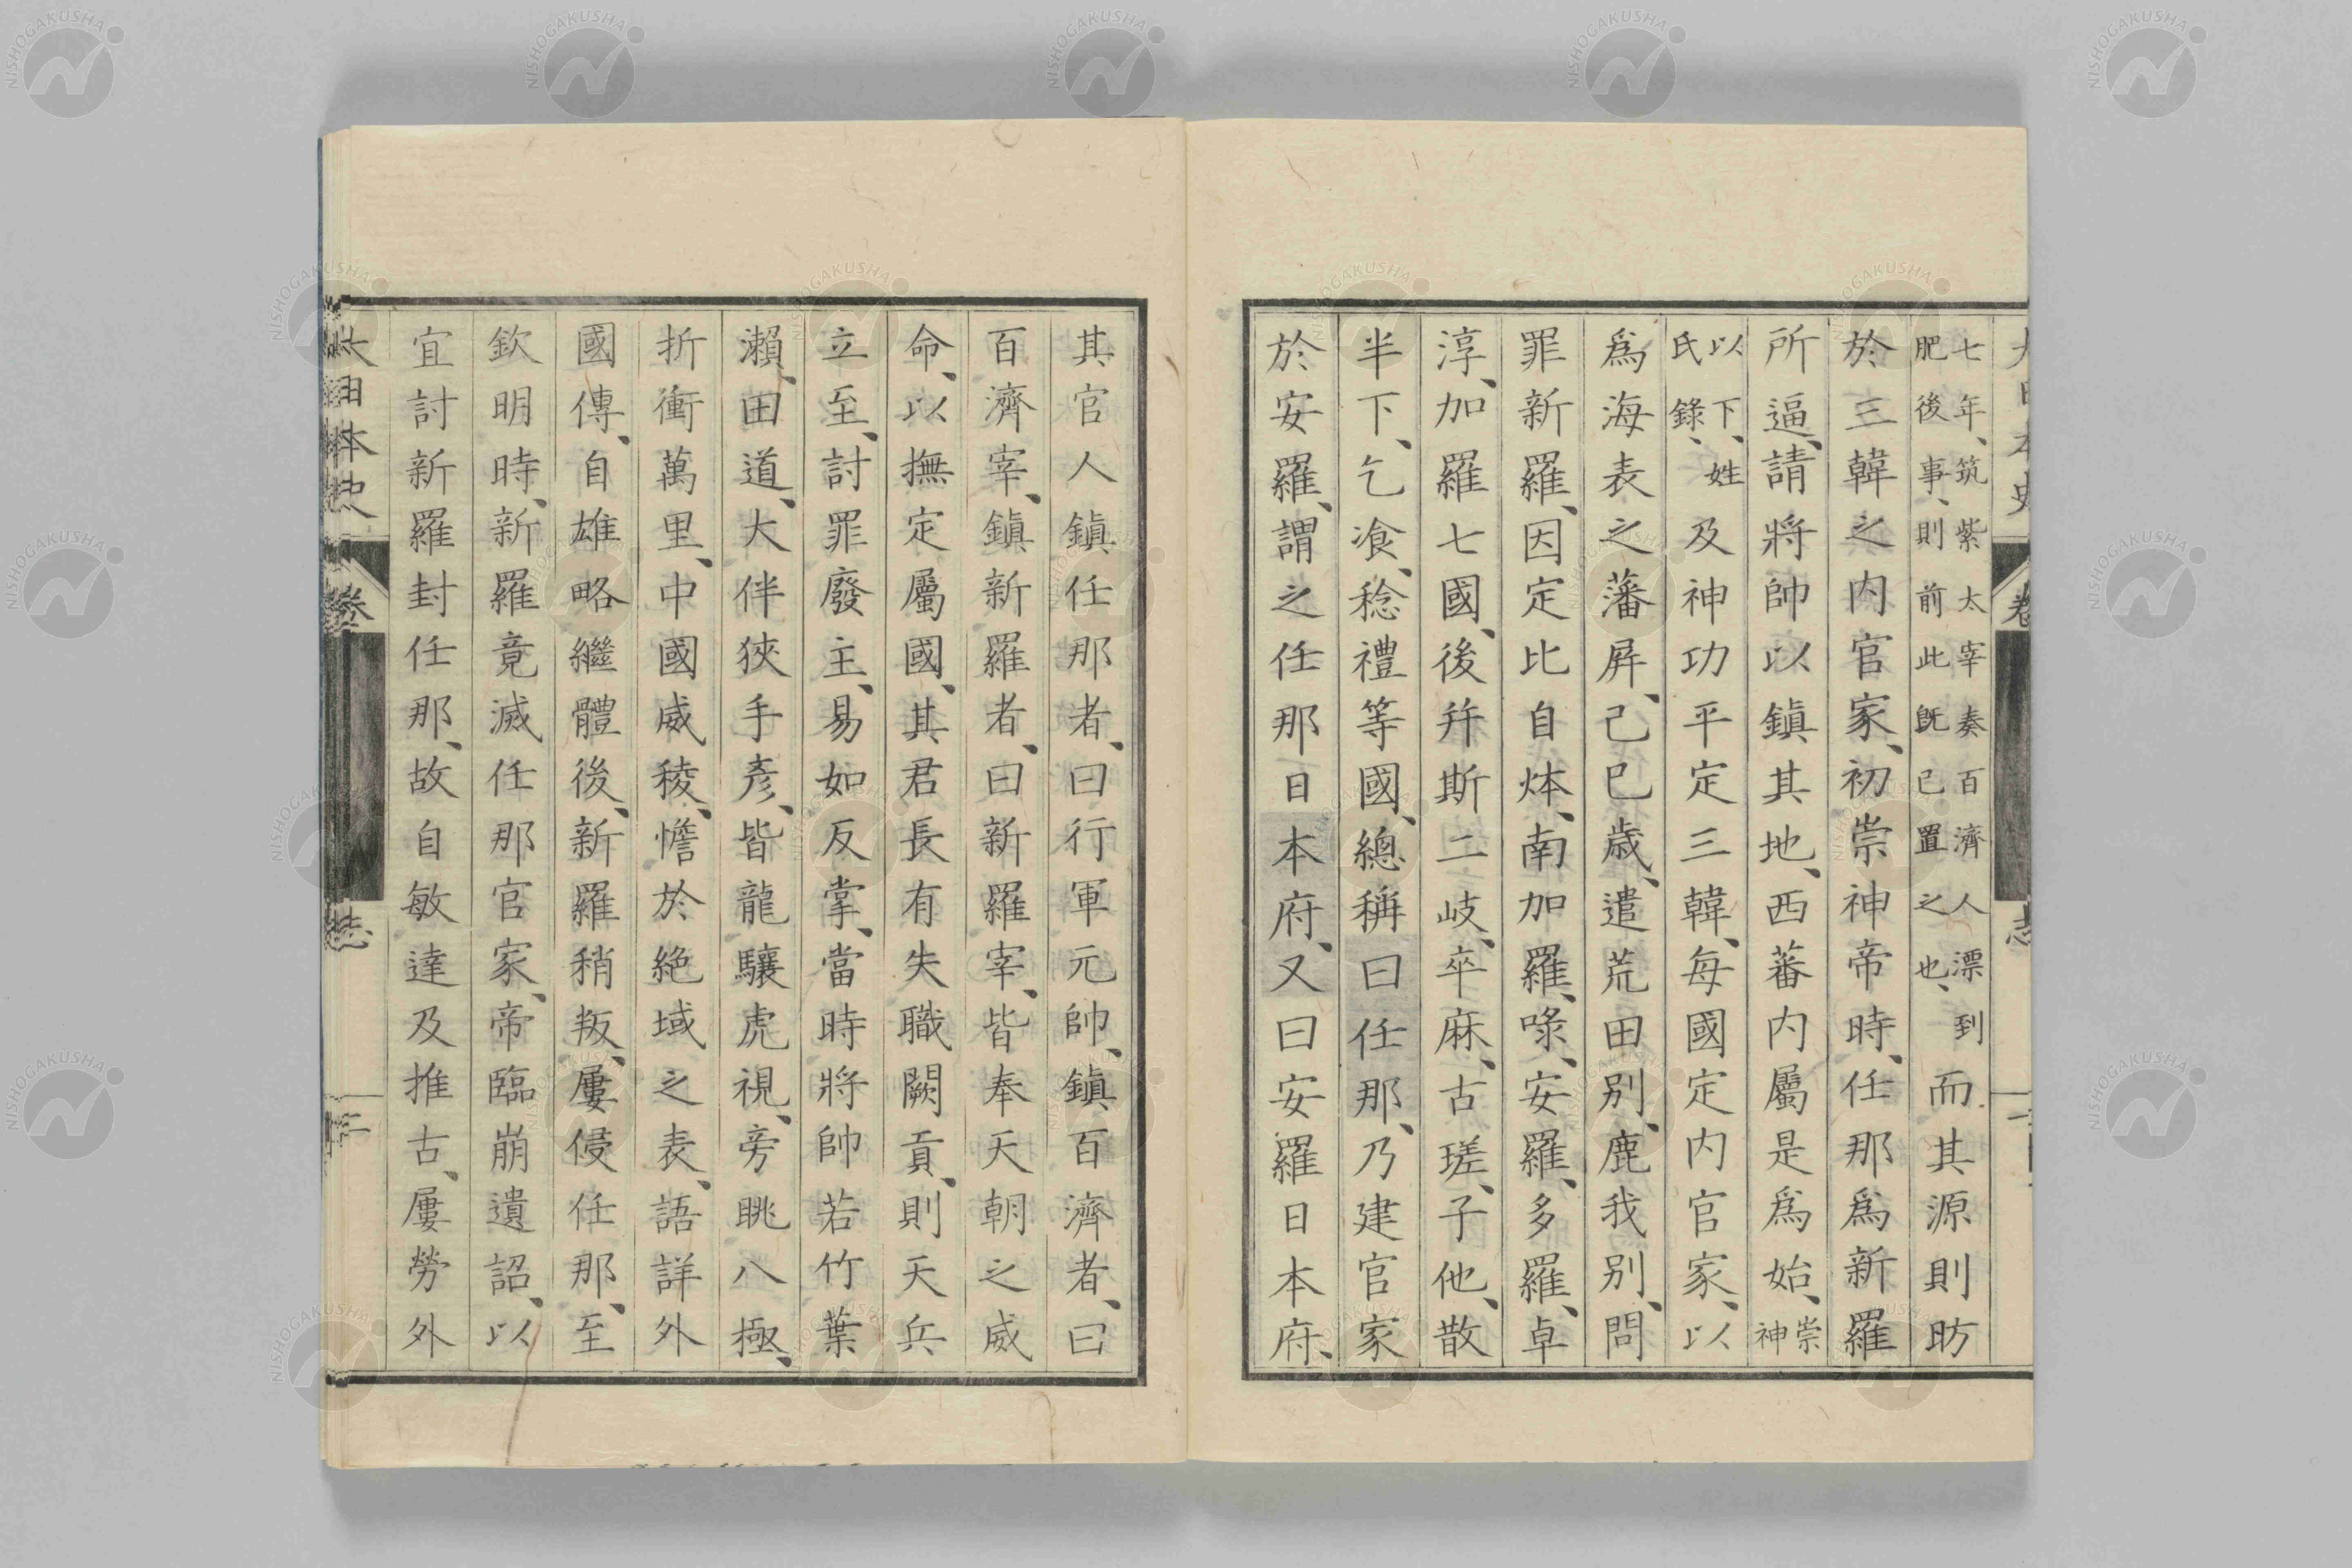 七年、筑紫太宰奏百濟人漂到
肥後事、則前此既已置之也、
而其源則昉
於三韓之内官家、初崇神帝時、任那爲新羅
所逼、請將帥以鎮其地、西蕃内屬是爲始、崇神
以下、姓氏錄、
及神功平定三韓、每國定内官家、以
爲海表之藩屏、己巳歳、遣荒田別、鹿我別、問
罪新羅、因定比自㶱、南加羅、㖨、安羅、多羅、卓
淳、加羅七國、後幷斯二岐、卒麻、古瑳、子他、散
半下、乞飡、稔禮等國、總稱曰任那、乃建官家
於安羅、謂之任那日本府、又曰安羅日本府、
其官人鎮任那者、曰行軍元帥、鎮百濟者、曰
百濟宰、鎮新羅者、曰新羅宰、皆奉天朝之威
命、以撫定屬國、其君長有失職闕貢、則天兵
立至、討罪廢主、易如反掌、當時將帥若竹葉
瀬、田道、大伴狹手彦、皆龍驤虎視、旁眺八極、
折衝萬里、中國威稜、憺於絶域之表、語詳外
國傳、自雄略繼體後、新羅稍叛、屢侵任那、至
欽明時、新羅竟滅任那官家、帝臨崩遺詔、以
宜討新羅封任那、故自敏達及推古、屢勞外
大日本史
卷
志